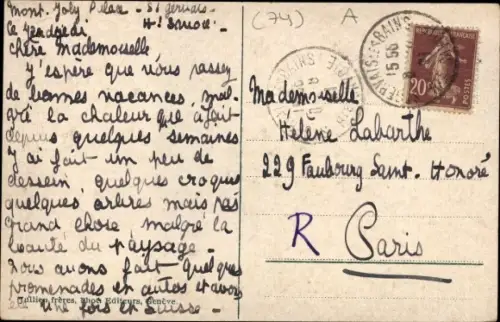 Mont. Joly Palace - St Gervais
Hte Savoie
Ce vendredi
chère Mademoiselle
J'espère que vous passez
de bonnes vacances, mal-
gré la chaleur qu'a fait
depuis quelques semaines
J'ai fait un peu de
dessein, quelques croquis
quelques arbres mais pas
grand chose, malgré la
beauté du paysage -
Nous avons fait quelques
promenades en autos et avons
été une fois en Suisse -
Jullien frères, Phot. Editeurs, Genève
(74) A
RÉPUBLIQUE FRANÇAISE
20c
POSTES
ST GERVAIS LES BAINS
15 55
Mademoiselle
Helene Labarthe
229 Faubourg Saint-Honoré
R Paris